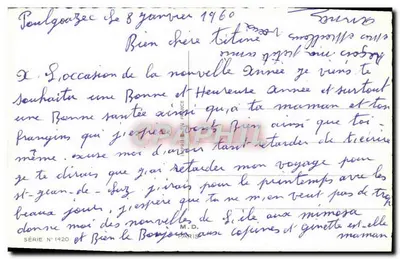 Poulgoazec le 8 janvier 1960
Bien chère Titine
A L'occasion de la nouvelle Année je viens te
souhaiter une Bonne et Heureuse Année et surtout
une Bonne santée ainsi qu'a ta maman et ton
frangins qui j'espere vont Bien ainsi que toi
même. excuse moi d'avoir tant retarder de t'ecrire
je te dirais que j'ai retarder mon voyage pour
st-jean-de-Luz j'irais pour le printemps avec les
beaux jours, j'espere que ta ne m'en veut pas de trop
donne moi des nouvelles de L'île aux mimosa
et Bien le Bonjour aux copines et ginette est-elle
maman
SÉRIE N° 1420
M.D.
PARIS